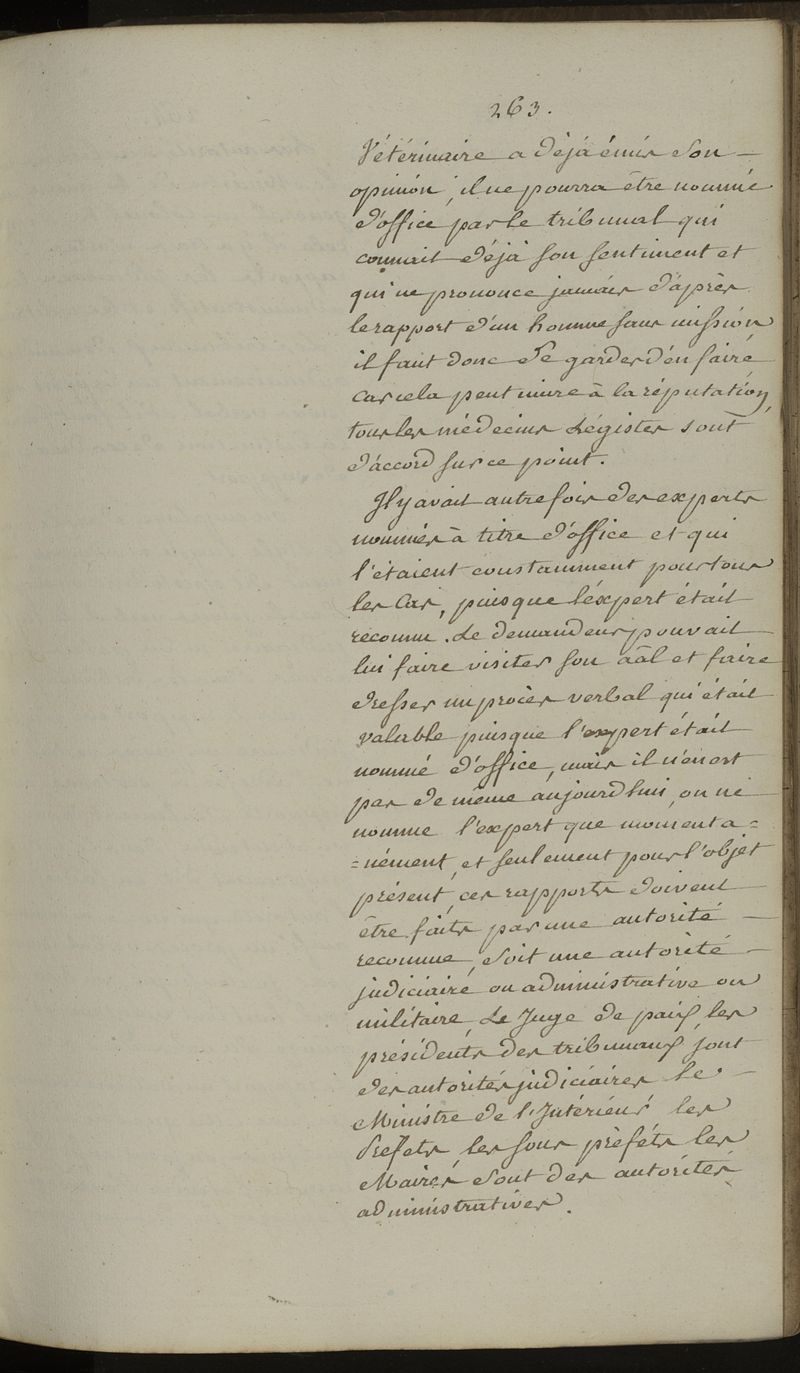 263.
Vétérinaire a déjà émis son —
opinion, il ne pourra être nommé
d'office par le tribunal qui
connait déjà son sentiment et
qui ne prononce jamais d'après
le rapport d'un homme sans mission
il faut donc se garder d'en faire
car cela peut nuire à la réputation,
tous les médecins Légistes sont
d'accord sur ce point.
Il y avait autrefois des experts
nommés à titre d'office et qui
l'étaient constamment pour tous
les Cas, puisque l'éxpert était
reconnu. Le demandeur pouvait —
lui faire visiter son aâl et faire
dresser un procès verbal qui était
valable puisque l'expert était
nommé d'office, mais il n'en est
pas de même aujourd'hui, on ne
nomme l'expert que momenta=
=nément, et seulement pour l'objet
présent, ces rapports doivent —
être faits par une autorité —
reconnue, soit une autorité —
judiciaire ou administrative ou
militaire, Le Juge de paix, les
présidents des tribunaux sont
des autorités judiciaires le —
Ministre de l'Intérieur les
Prefets les sous préféts les
Maires sont des autorités
administratives.